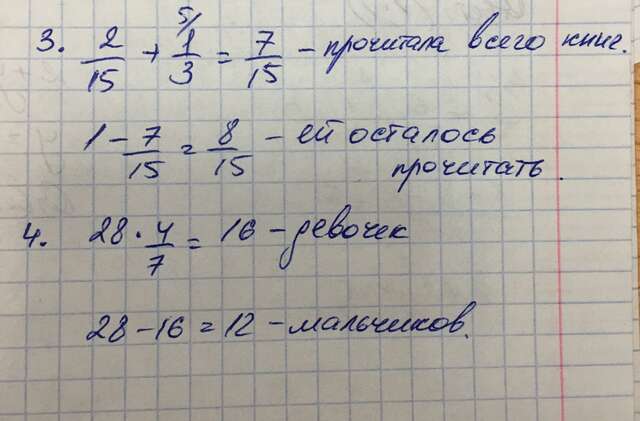 3. 2/15 + 5/ 1/3 = 7/15 – прочитала всего книг.
1 – 7/15 = 8/15 – ей осталось
прочитать.
4. 28 · 4/7 = 16 – девочек
28 – 16 = 12 – мальчиков.